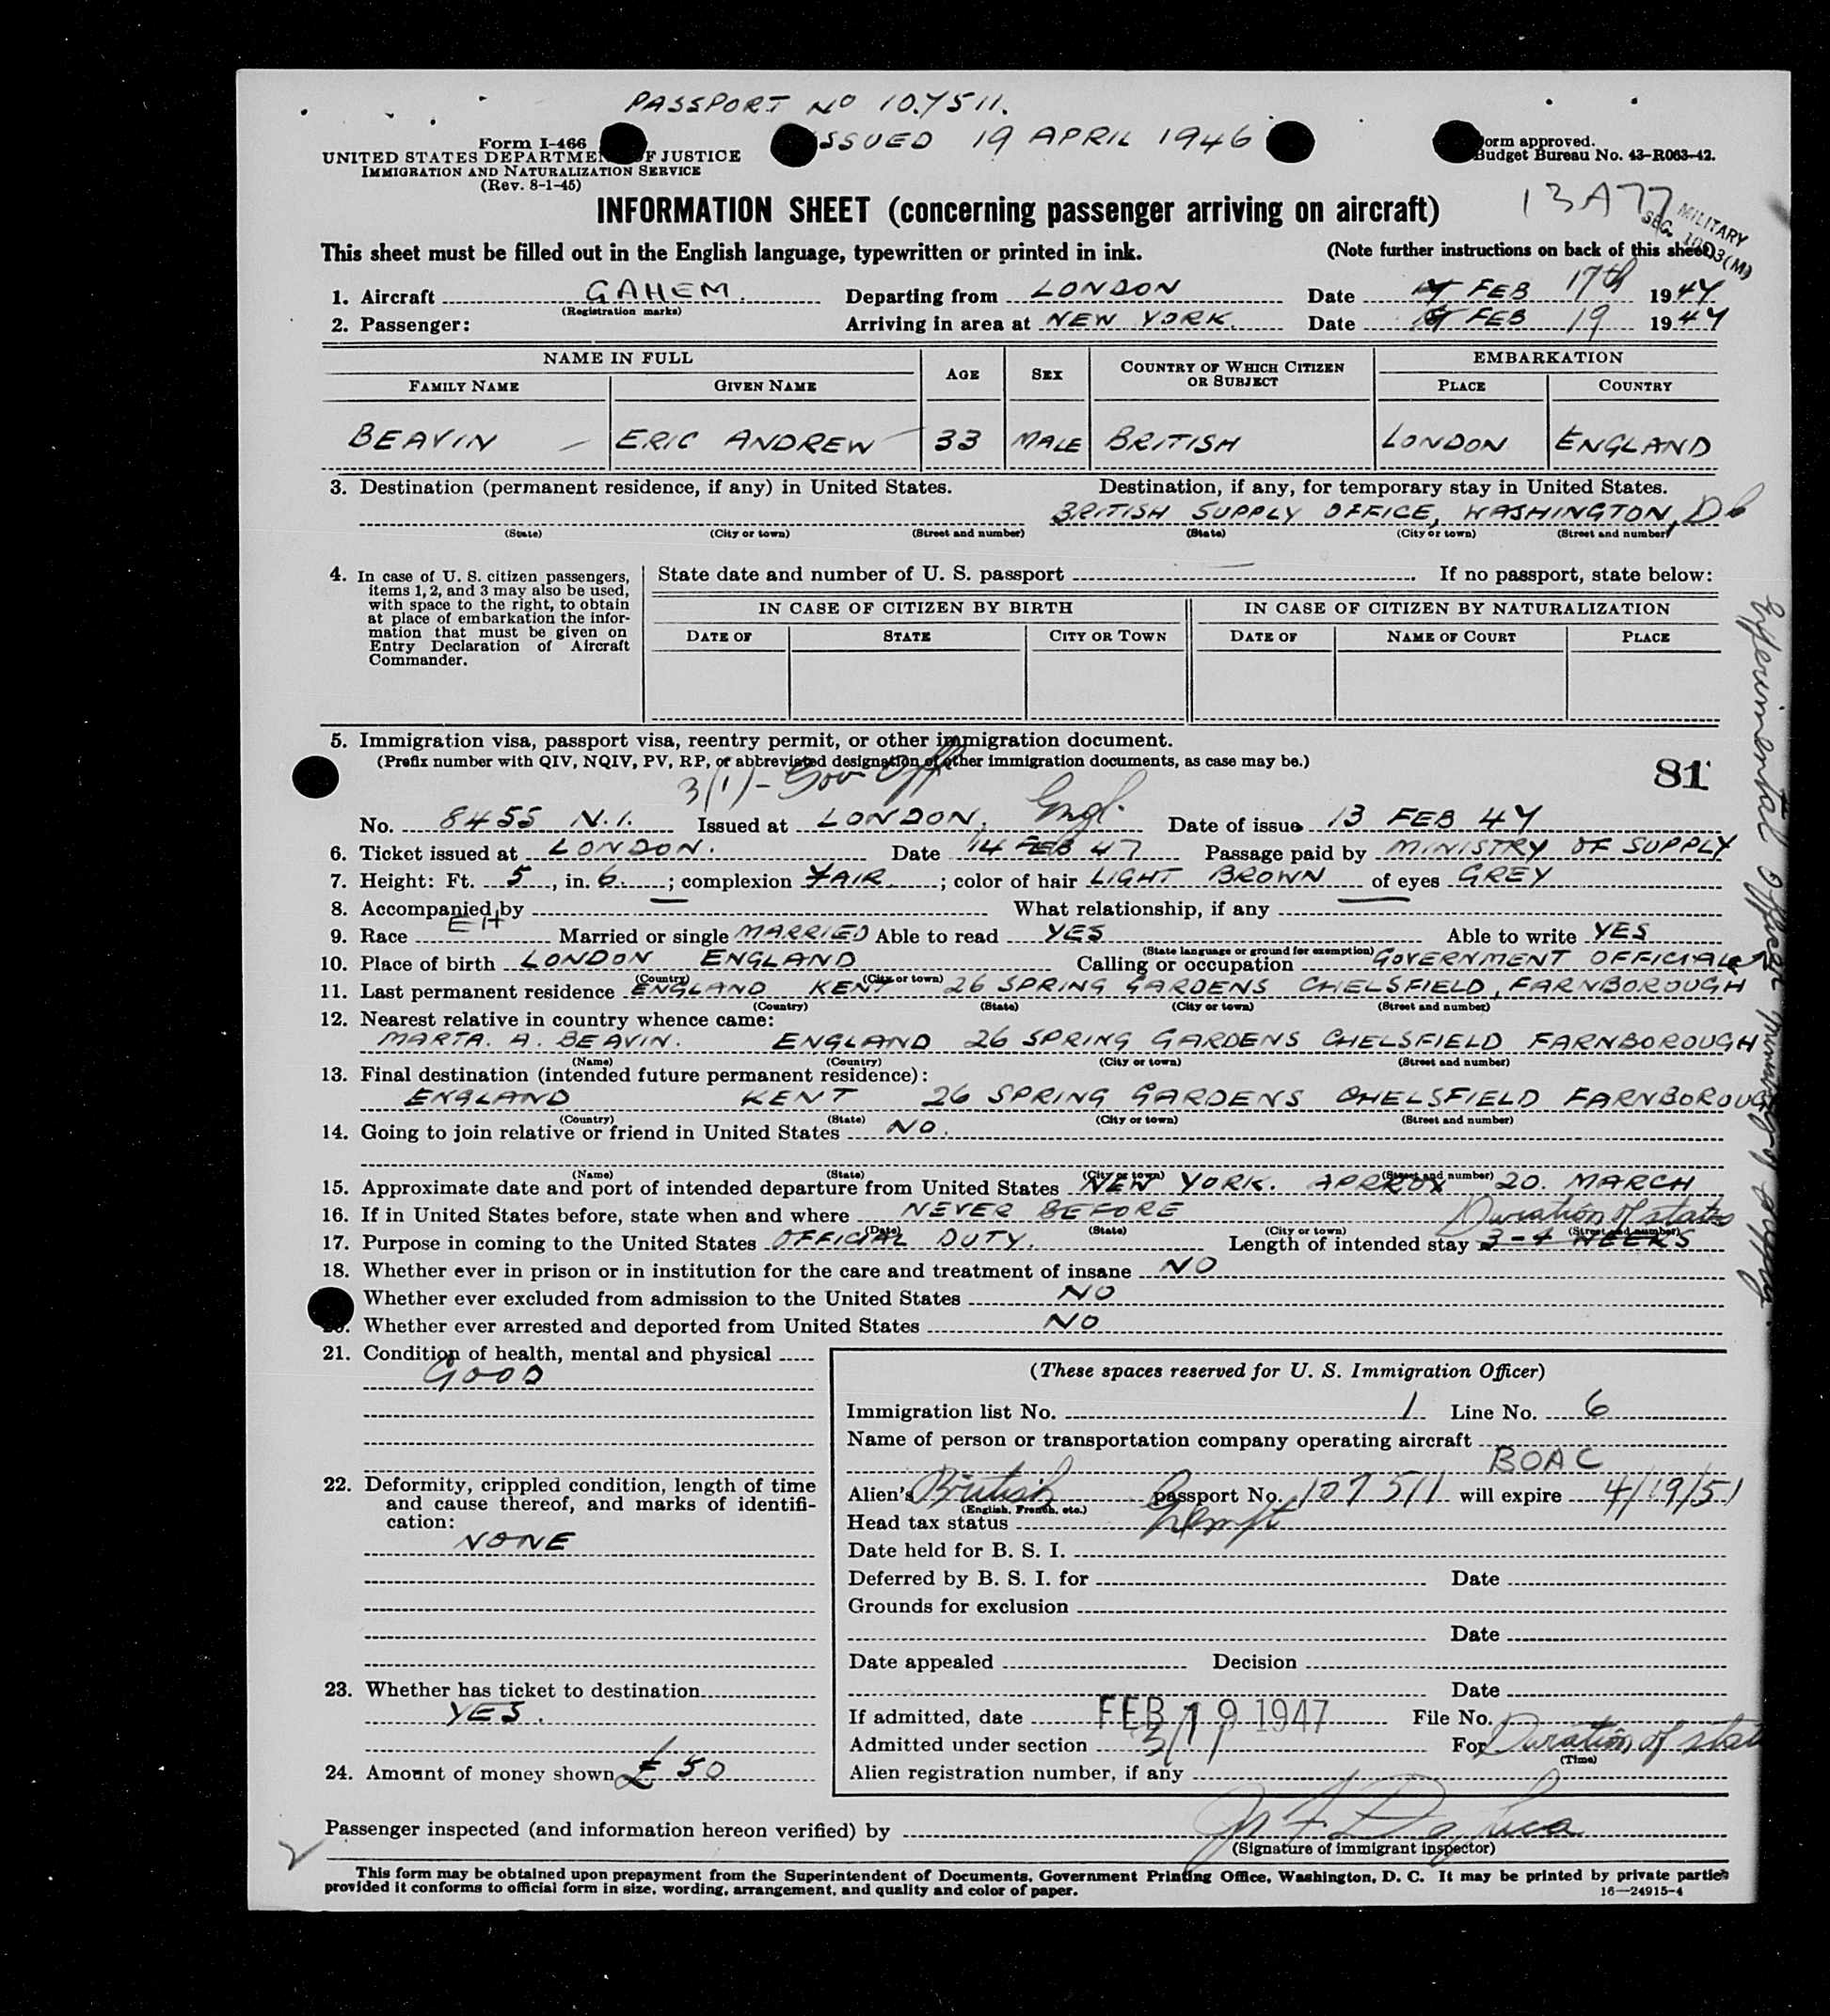 PASSPORT No 107511.
ISSUED 19 APRIL 1946
Form I-466
UNITED STATES DEPARTMENT OF JUSTICE
IMMIGRATION AND NATURALIZATION SERVICE
(Rev. 8-1-45)
Form approved.
Budget Bureau No. 43-R063-42.
13A77
MILITARY
SEC. 10.03(M)
INFORMATION SHEET (concerning passenger arriving on aircraft)
This sheet must be filled out in the English language, typewritten or printed in ink. (Note further instructions on back of this sheet.)
1. Aircraft GAHEM. Departing from LONDON Date FEB 17th 1947
(Registration marks)
2. Passenger: Arriving in area at NEW YORK. Date FEB 19 1947
NAME IN FULL EMBARKATION
FAMILY NAME GIVEN NAME AGE SEX COUNTRY OF WHICH CITIZEN OR SUBJECT PLACE COUNTRY
BEAVIN ERIC ANDREW 33 MALE BRITISH LONDON ENGLAND
3. Destination (permanent residence, if any) in United States. Destination, if any, for temporary stay in United States.
BRITISH SUPPLY OFFICE, WASHINGTON, DC
(State) (City or town) (Street and number) (State) (City or town) (Street and number)
4. In case of U. S. citizen passengers, items 1, 2, and 3 may also be used, with space to the right, to obtain at place of embarkation the information that must be given on Entry Declaration of Aircraft Commander.
State date and number of U. S. passport — . If no passport, state below:
IN CASE OF CITIZEN BY BIRTH IN CASE OF CITIZEN BY NATURALIZATION
DATE OF STATE CITY OR TOWN DATE OF NAME OF COURT PLACE
5. Immigration visa, passport visa, reentry permit, or other immigration document.
(Prefix number with QIV, NQIV, PV, RP, or abbreviated designation of other immigration documents, as case may be.)
81
3/1/- Gov Off
No. 8455 N.I. Issued at LONDON, Engl. Date of issue 13 FEB 47
6. Ticket issued at LONDON. Date 14 FEB 47 Passage paid by MINISTRY OF SUPPLY
7. Height: Ft. 5, in. 6. ; complexion FAIR ; color of hair LIGHT BROWN of eyes GREY
8. Accompanied by — What relationship, if any —
9. Race EH Married or single MARRIED Able to read YES Able to write YES
(State language or ground for exemption)
10. Place of birth LONDON ENGLAND Calling or occupation GOVERNMENT OFFICIAL
(Country) (City or town)
11. Last permanent residence ENGLAND KENT 26 SPRING GARDENS CHELSFIELD, FARNBOROUGH
(Country) (State) (City or town) (Street and number)
12. Nearest relative in country whence came:
MARTA. A. BEAVIN. ENGLAND 26 SPRING GARDENS CHELSFIELD FARNBOROUGH
(Name) (Country) (City or town) (Street and number)
13. Final destination (intended future permanent residence):
ENGLAND KENT 26 SPRING GARDENS CHELSFIELD FARNBOROUGH
(Country) (State) (City or town) (Street and number)
14. Going to join relative or friend in United States NO.
(Name) (State) (City or town) (Street and number)
15. Approximate date and port of intended departure from United States NEW YORK. APRROX 20. MARCH
16. If in United States before, state when and where NEVER BEFORE
(Date) (State) (City or town) (Street and number)
Duration of status
17. Purpose in coming to the United States OFFICIAL DUTY. Length of intended stay 3-4 WEEKS
18. Whether ever in prison or in institution for the care and treatment of insane NO
Whether ever excluded from admission to the United States NO
20. Whether ever arrested and deported from United States NO
21. Condition of health, mental and physical
GOOD
22. Deformity, crippled condition, length of time and cause thereof, and marks of identification:
NONE
23. Whether has ticket to destination
YES.
24. Amount of money shown £ 50
(These spaces reserved for U. S. Immigration Officer)
Immigration list No. 1 Line No. 6
Name of person or transportation company operating aircraft
BOAC
Alien's British passport No. 107511 will expire 4/19/51
(English, French, etc.)
Head tax status Exempt
Date held for B. S. I.
Deferred by B. S. I. for Date
Grounds for exclusion
Date
Date appealed Decision
Date
If admitted, date FEB 19 1947 File No.
Admitted under section 3/1/ For Duration of stat
(Time)
Alien registration number, if any
Passenger inspected (and information hereon verified) by
(Signature of immigrant inspector)
This form may be obtained upon prepayment from the Superintendent of Documents, Government Printing Office, Washington, D. C. It may be printed by private parties
provided it conforms to official form in size, wording, arrangement, and quality and color of paper.
16—24915-4
Experimental Officer Ministry of Supply.